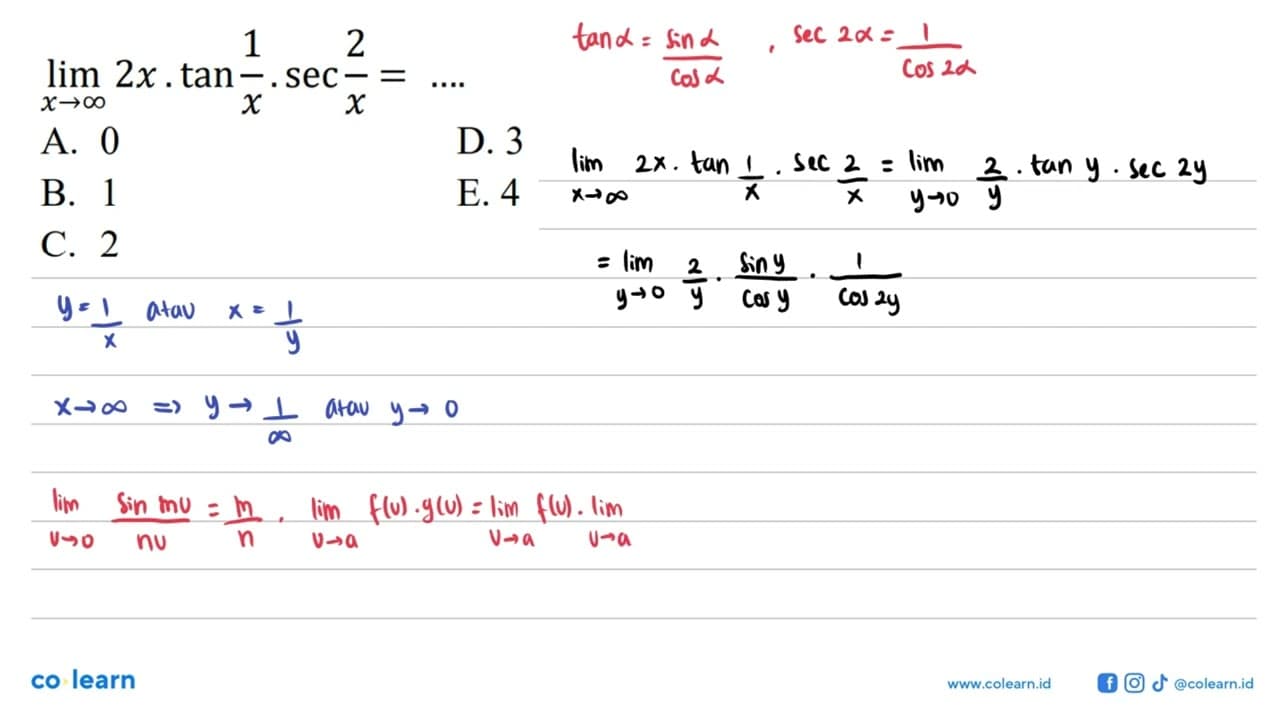 lim x→∞ 2x . tan 1/x . sec 2/x = ....
A. 0
B. 1
C. 2
D. 3
E. 4
tan α = sin α / cos α , sec 2α = 1 / cos 2α
lim x→∞ 2x . tan 1/x . sec 2/x = lim y→0 2/y . tan y . sec 2y
= lim y→0 2/y . sin y / cos y . 1 / cos 2y
y = 1/x atau x = 1/y
x→∞ => y→ 1/∞ atau y→0
lim u→0 sin mu / nu = m/n . lim u→a f(u) . g(u) = lim u→a f(u) . lim u→a
co learn
www.colearn.id
@colearn.id